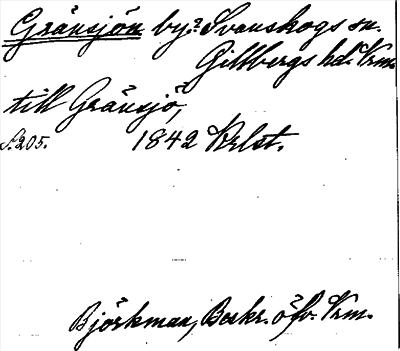 Gränsjön by? Svanskogs sn.
Gillbergs hd. Vrm.
till Gränsjö,
S. 205. 1842 Krlst.
Björkman, Beskr. öfv. Vrm.